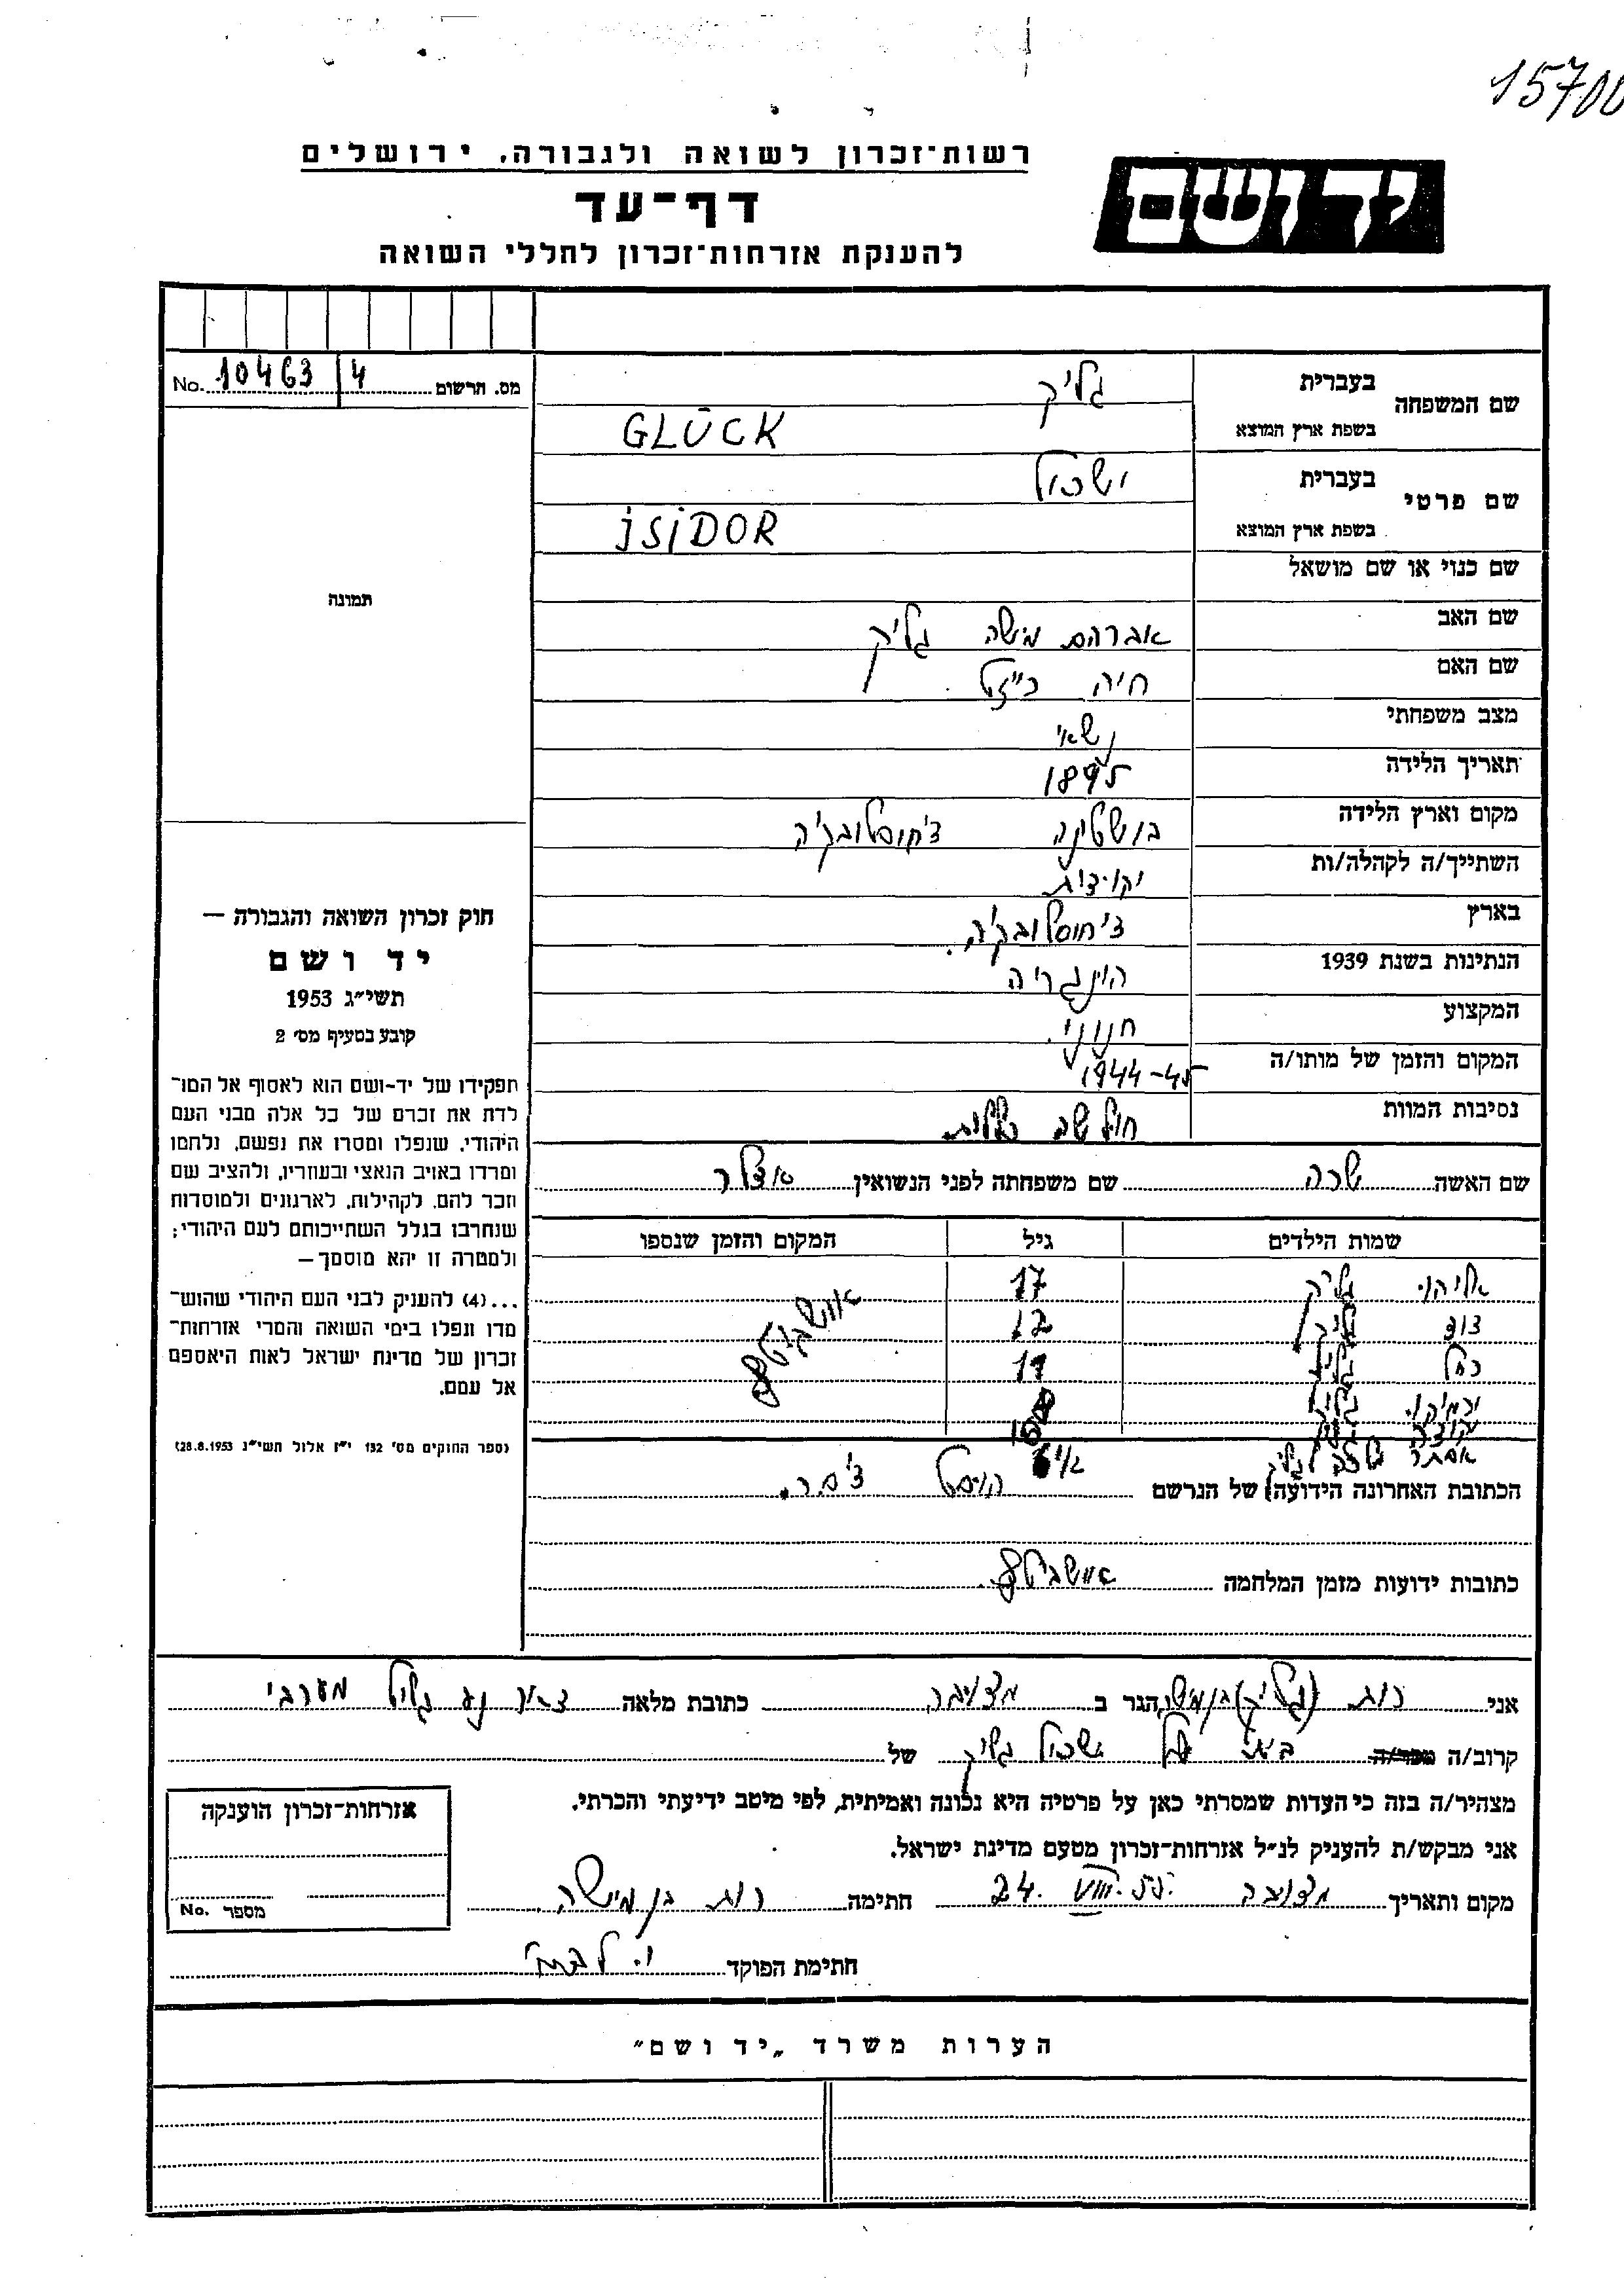 15700
רשות־זכרון לשואה ולגבורה, ירושלים
יד ושם
דף־עד
להענקת אזרחות־זכרון לחללי השואה
מס. הרשום 4 10463 No.
שם המשפחה
בעברית גליק
בשפת ארץ המוצא GLÜCK
שם פרטי
בעברית
בשפת ארץ המוצא ISIDOR
שם כנוי או שם מושאל
שם האב אברהם משה גליק
שם האם חיה רייזל
מצב משפחתי נשאוי
תאריך הלידה 1895
מקום וארץ הלידה צ'כוסלובקיה
השתייך/ה לקהלה/ות
בארץ צ'כוסלובקיה
הנתינות בשנת 1939 הונגריה
המקצוע חנוני
המקום והזמן של מותו/ה 1944-45
נסיבות המוות
שם האשה שרה שם משפחתה לפני הנשואין
שמות הילדים גיל המקום והזמן שנספו
אליהו גליק 17 אושביץ
דוד גליק 12
רחל גליק 11
אסתר
הכתובת האחרונה הידועה של הנרשם צ.ס.ר.
כתובות ידועות מזמן המלחמה אושביץ
אני רות (גליק) בן משה הגר ב מצובה כתובת מלאה דאר נע גליל מערבי
קרוב/ה מכר/ה של גליק
מצהיר/ה בזה כי העדות שמסרתי כאן על פרטיה היא נכונה ואמיתית, לפי מיטב ידיעתי והכרתי.
אני מבקש/ת להעניק לנ״ל אזרחות־זכרון מטעם מדינת ישראל.
מקום ותאריך מצובה 24. VIII. 55. חתימה רות בן משה
חתימת הפוקד
תמונה
חוק זכרון השואה והגבורה —
יד ושם
תשי״ג 1953
קובע בסעיף מס׳ 2
תפקידו של יד־ושם הוא לאסוף אל המו־
לדת את זכרם של כל אלה מבני העם
היהודי, שנפלו ומסרו את נפשם, נלחמו
ומרדו באויב הנאצי ובעוזריו, ולהציב שם
וזכר להם, לקהילות, לארגונים ולמוסדות
שנחרבו בגלל השתייכותם לעם היהודי;
ולמטרה זו יהא מוסמך—
...(4) להעניק לבני העם היהודי שהוש־
מדו ונפלו בימי השואה והמרי אזרחות־
זכרון של מדינת ישראל לאות היאספם
אל עמם.
(ספר החוקים מס׳ 132 י״ז אלול תשי״ג 28.8.1953)
אזרחות־זכרון הוענקה
מספר No.
הערות משרד „יד ושם״